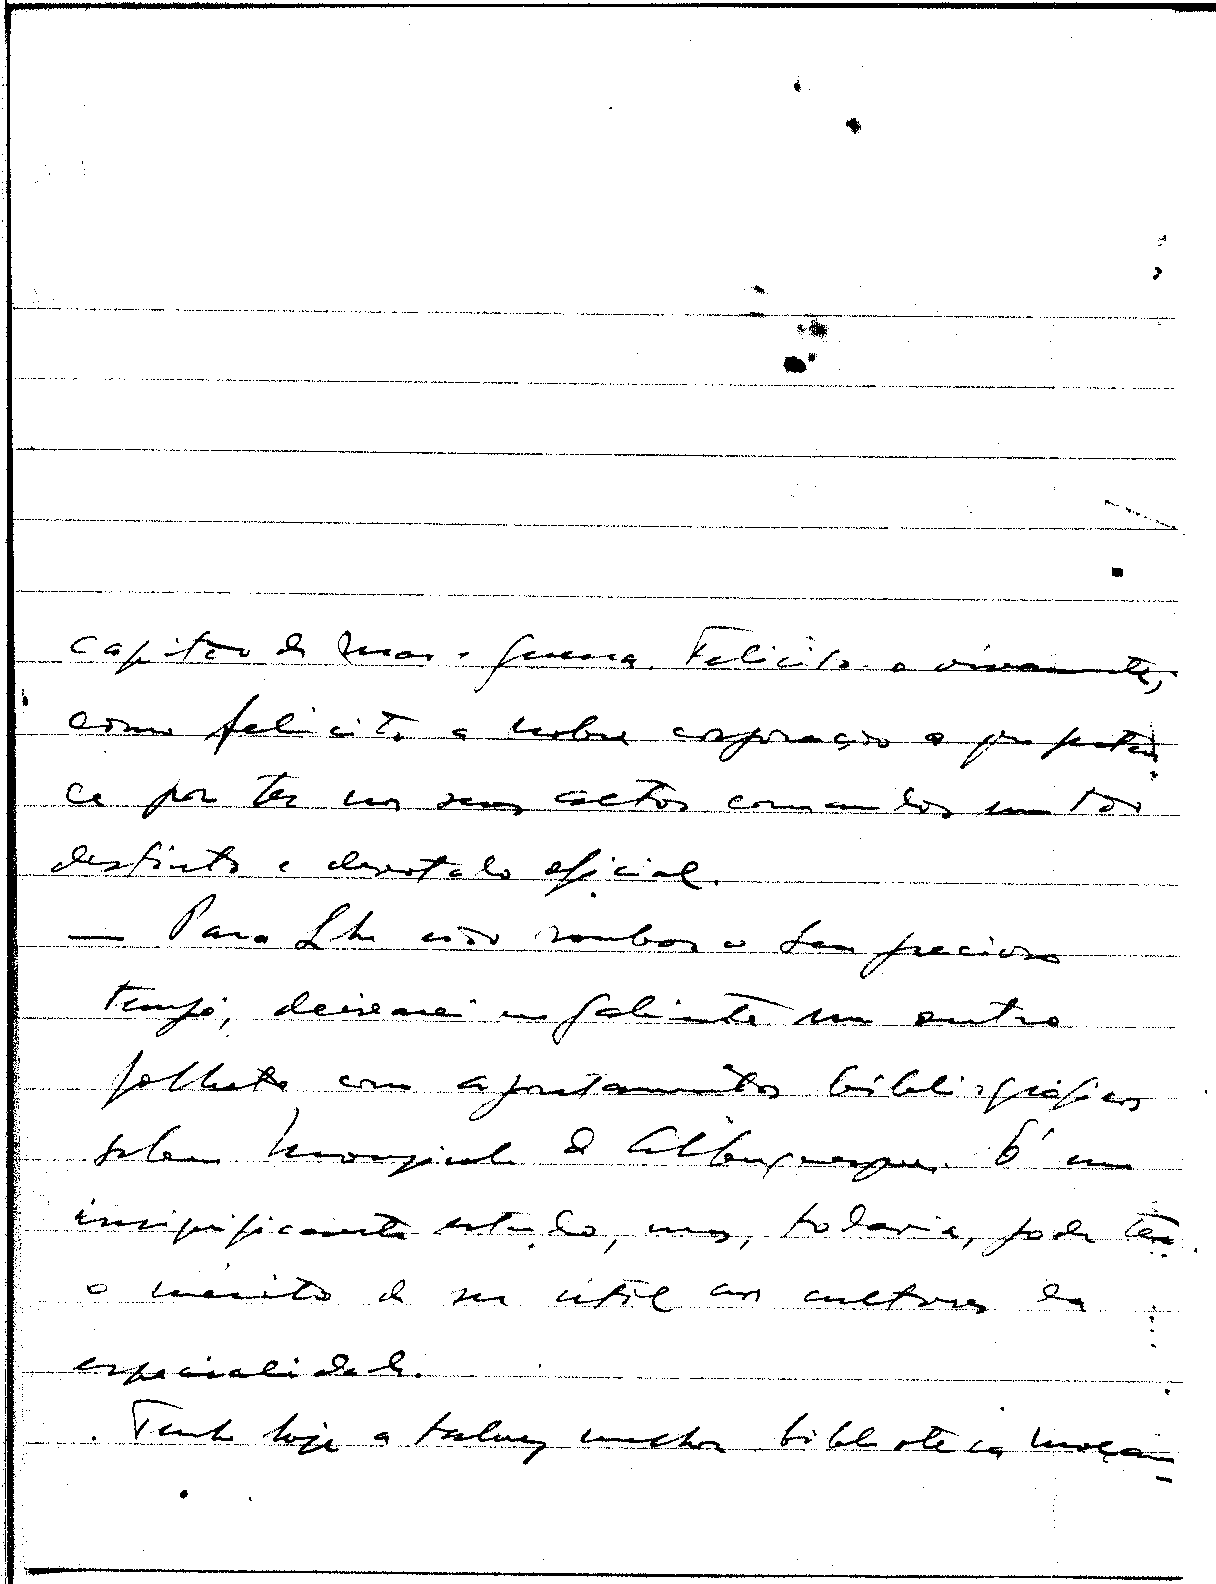 capitão de mar e guerra. Felicito-o vivamente,
como felicito a nobre corporação a que perten
ce por ter nos seus actos comandos um tão
distinto e devotado oficial.
— Para Lhe não roubar o Seu precioso
tempo, deixarei no gabinete um outro
folheto com apontamentos bibliográficos
sobre Mousinho de Albuquerque. É um
insignificante estudo, mas, todavia, pode ter
o mérito de ser útil aos cultores da
especialidade.
Tenho hoje a talvez melhor biblioteca moçam-